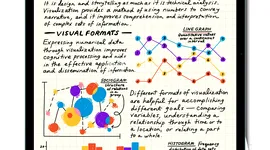 It is design, and storytelling as much as it is technical analysis.
Visualization provides a method of using numbers to convey
narrative, and it improves comprehension and interpretation
of complex sets of information.
VISUAL FORMATS
Expressing numerical data
through visualization improves
cognitive processing and aids
in the effective application
and dissemination of information.
LINE GRAPH
Quantitative values
over a continuous
SOCIOGRAM
Structure
of relations
in a group
Different formats of visualization
are helpful for accomplishing
different goals — comparing
variables, understanding a
relationship through time or to
a location, or relating a part
to a whole.
HISTOGRAM
Frequency